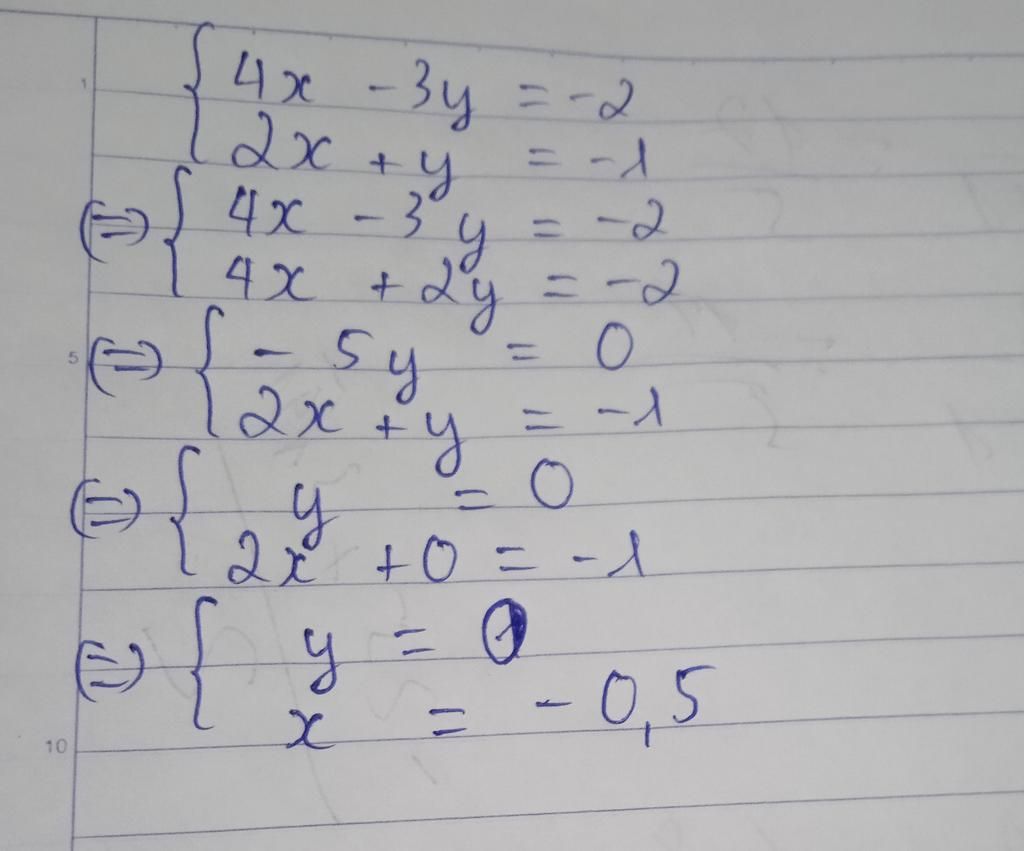 1 { 4x - 3y = -2
2x + y = -1
(=) { 4x - 3y = -2
4x + 2y = -2
5 (=) { - 5y = 0
2x + y = -1
(=) { y = 0
2x + 0 = -1
(=) { y = 0
x = - 0,5
10